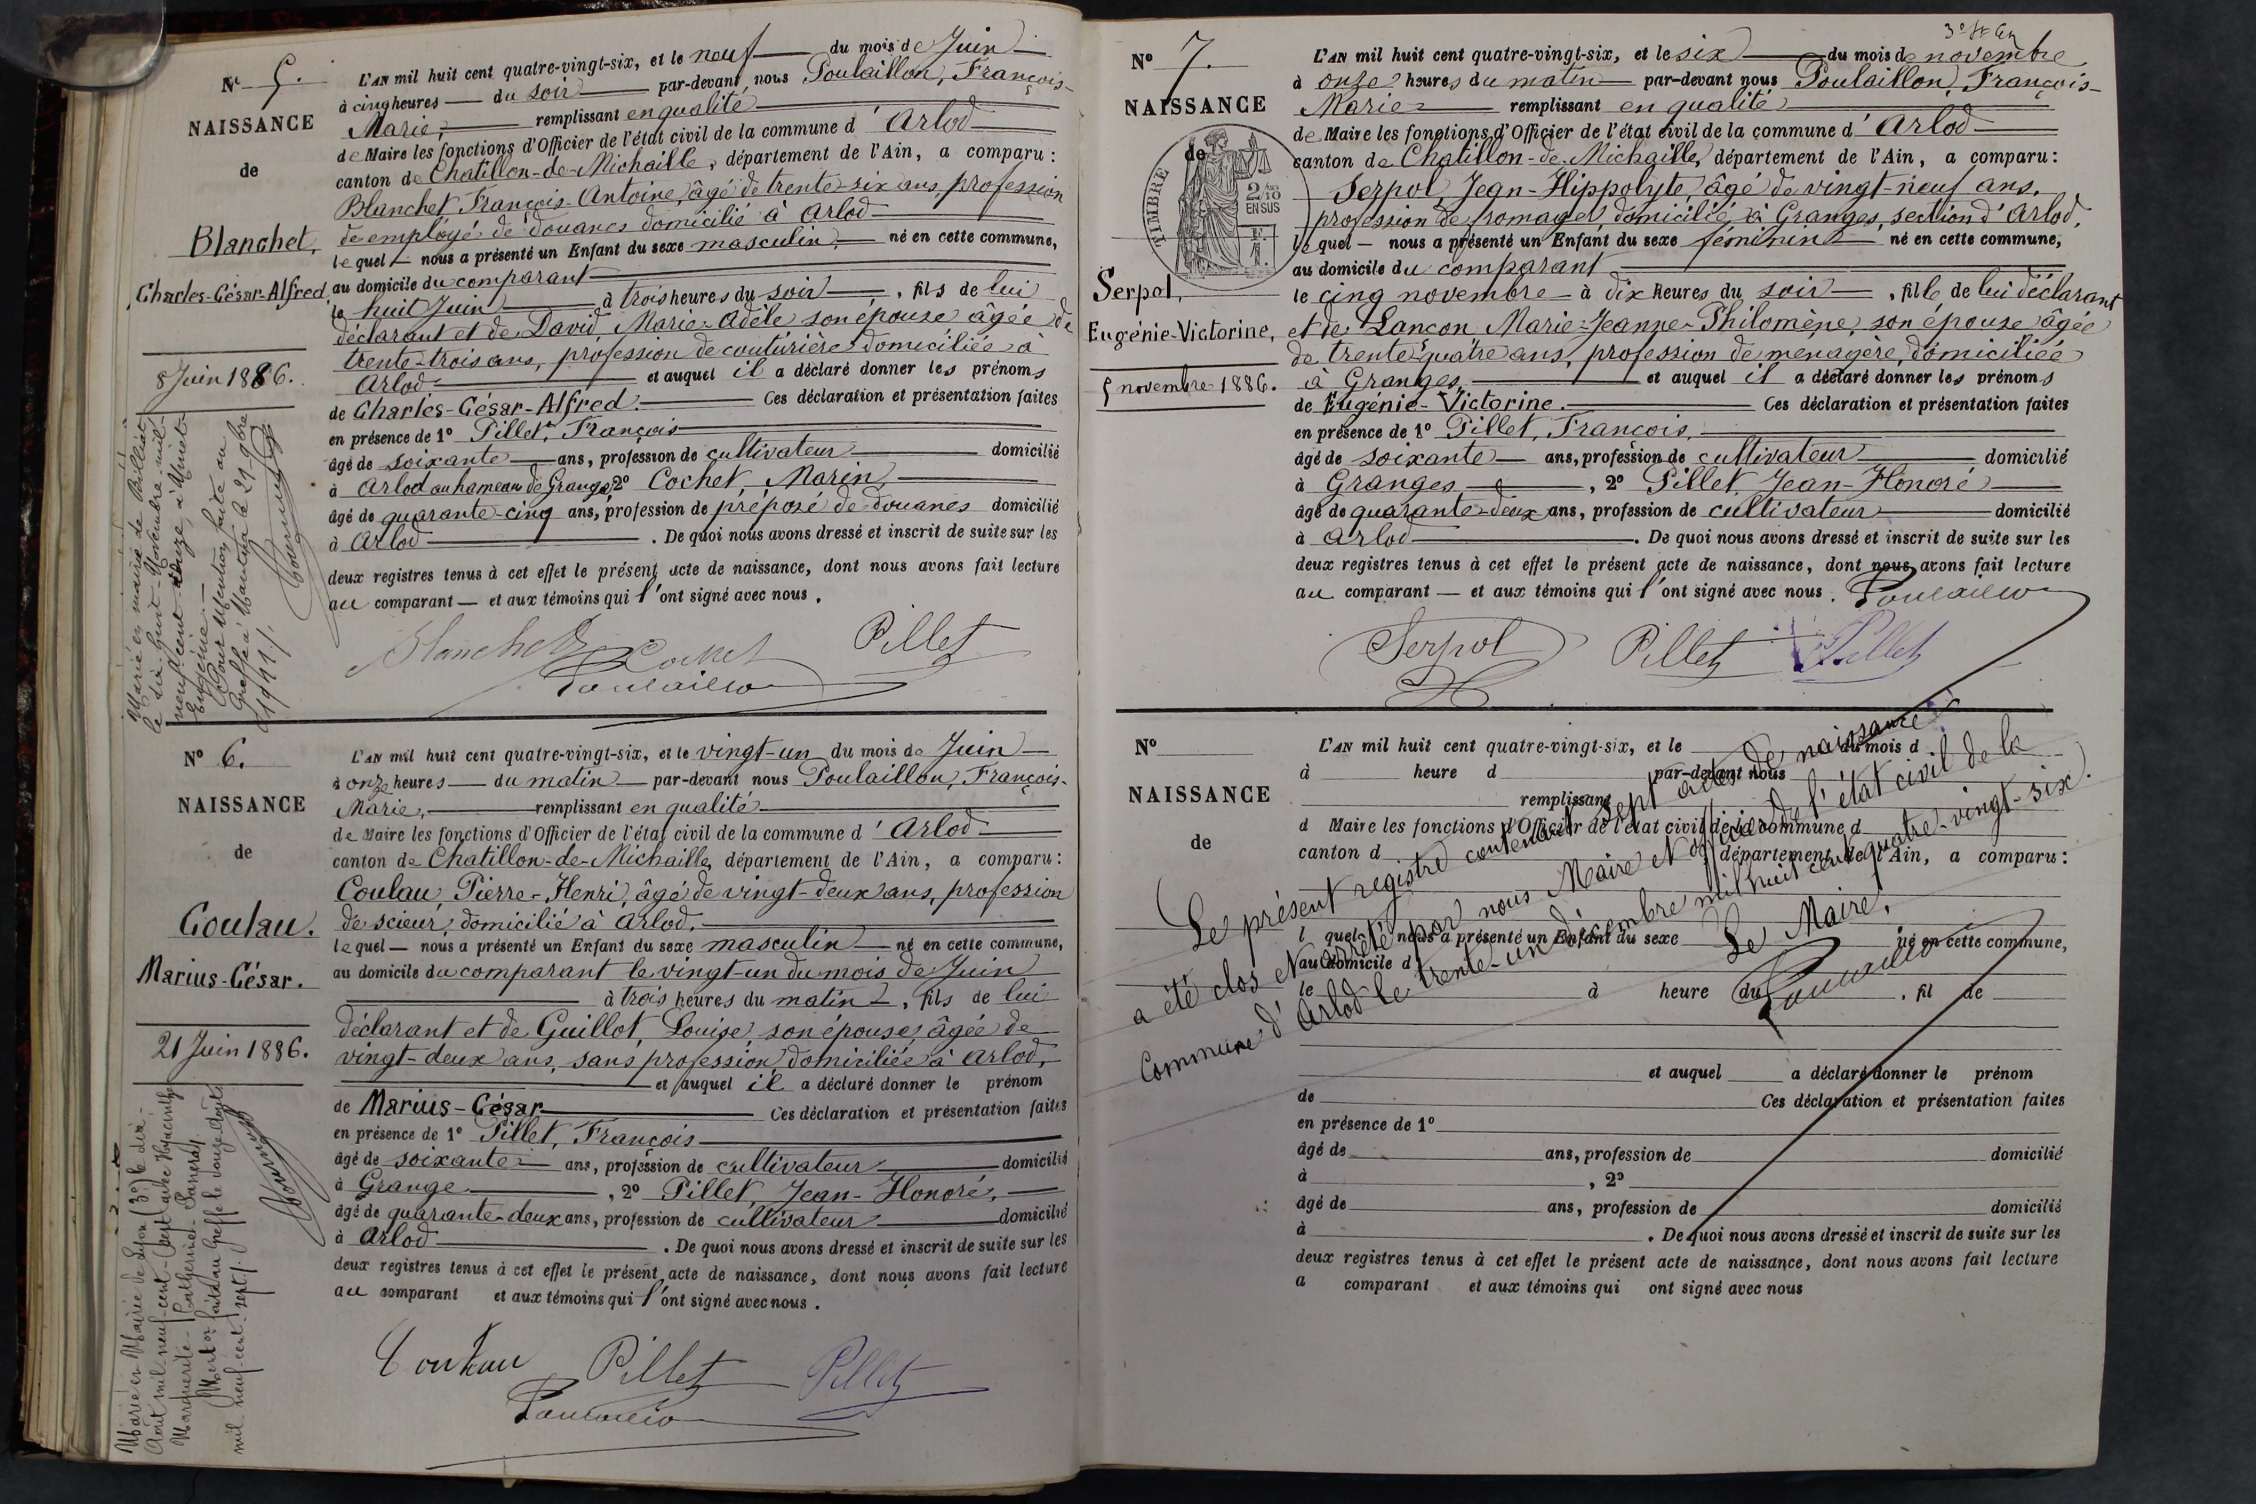 Nº 5.
NAISSANCE
de
Blanchet,
Charles-César-Alfred.
8 Juin 1886.
Marié en mairie de Billiat
le dix-huit Novembre mil
neuf cent onze, à
Eugénie.
Pour Mention faite au
Greffe à Nantua le 21 9bre
1911./.
L'AN mil huit cent quatre-vingt-six, et le neuf du mois de Juin
à cinq heures du soir par-devant nous Poulaillon, François-
Marie, remplissant en qualité
de Maire les fonctions d'Officier de l'état civil de la commune d'Arlod
canton de Chatillon-de-Michaille, département de l'Ain, a comparu :
Blanchet, François-Antoine, âgé de trente-six ans, profession
de employé de douanes domicilié à Arlod
lequel nous a présenté un Enfant du sexe masculin, né en cette commune,
au domicile du comparant
le huit Juin à trois heures du soir, fils de lui
déclarant et de David Marie-Adèle son épouse âgée de
trente-trois ans, profession de couturière domiciliée à
Arlod et auquel il a déclaré donner les prénoms
de Charles-César-Alfred. Ces déclaration et présentation faites
en présence de 1º Pillet, François
âgé de soixante ans, profession de cultivateur domicilié
à Arlod au hameau de Grange, 2º Cochet Marin,
âgé de quarante-cinq ans, profession de préposé de douanes domicilié
à Arlod. De quoi nous avons dressé et inscrit de suite sur les
deux registres tenus à cet effet le présent acte de naissance, dont nous avons fait lecture
au comparant et aux témoins qui l'ont signé avec nous.
Blanchet Cochet Pillet
Poulaillon
Nº 6.
NAISSANCE
de
Coulau.
Marius-César.
21 Juin 1886.
Marié en Mairie de Lyon (3e) le dix-
Août mil neuf-cent-sept avec Hyacinthe
Marguerite-Catherine
Mention faite au Greffe le douze Août
mil neuf cent sept./.
L'AN mil huit cent quatre-vingt-six, et le vingt-un du mois de Juin
à onze heures du matin par-devant nous Poulaillon, François-
Marie, remplissant en qualité
de Maire les fonctions d'Officier de l'état civil de la commune d'Arlod
canton de Chatillon-de-Michaille, département de l'Ain, a comparu :
Coulau, Pierre-Henri, âgé de vingt-deux ans, profession
de scieur, domicilié à Arlod,
lequel nous a présenté un Enfant du sexe masculin né en cette commune,
au domicile du comparant le vingt-un du mois de Juin
à trois heures du matin, fils de lui
déclarant et de Guillot, Louise, son épouse, âgée de
vingt-deux ans, sans profession, domiciliée à Arlod,
et auquel il a déclaré donner le prénom
de Marius-César Ces déclaration et présentation faites
en présence de 1º Pillet, François
âgé de soixante ans, profession de cultivateur domicilié
à Grange, 2º Pillet, Jean-Honoré,
âgé de quarante-deux ans, profession de cultivateur domicilié
à Arlod. De quoi nous avons dressé et inscrit de suite sur les
deux registres tenus à cet effet le présent acte de naissance, dont nous avons fait lecture
au comparant et aux témoins qui l'ont signé avec nous.
Coulau Pillet Pillet
Poulaillon
Nº 7.
NAISSANCE
de
TIMBRE
2/10
EN SUS
Serpol,
Eugénie-Victorine,
5 novembre 1886.
L'AN mil huit cent quatre-vingt-six, et le six du mois de novembre
à onze heures du matin par-devant nous Poulaillon, François-
Marie remplissant en qualité
de Maire les fonctions d'Officier de l'état civil de la commune d'Arlod
canton de Chatillon-de-Michaille, département de l'Ain, a comparu :
Serpol, Jean-Hippolyte, âgé de vingt-neuf ans,
profession de fromager, domicilié à Granges, section d'Arlod,
lequel nous a présenté un Enfant du sexe féminin né en cette commune,
au domicile du comparant
le cinq novembre à dix heures du soir, fille de lui déclarant
et de Lançon Marie-Jeanne-Philomène, son épouse âgée
de trente-quatre ans, profession de ménagère, domiciliée
à Granges, et auquel il a déclaré donner les prénoms
de Eugénie-Victorine. Ces déclaration et présentation faites
en présence de 1º Pillet, François,
âgé de soixante ans, profession de cultivateur domicilié
à Granges, 2º Pillet, Jean-Honoré
âgé de quarante-deux ans, profession de cultivateur domicilié
à Arlod. De quoi nous avons dressé et inscrit de suite sur les
deux registres tenus à cet effet le présent acte de naissance, dont nous avons fait lecture
au comparant et aux témoins qui l'ont signé avec nous. Poulaillon
Serpol Pillet Pillet
Nº
NAISSANCE
de
L'AN mil huit cent quatre-vingt-six, et le du mois d
à heure d par-devant nous
remplissant
d Maire les fonctions d'Officier de l'état civil de la commune d
canton d département de l'Ain, a comparu :
l quel nous a présenté un Enfant du sexe né en cette commune,
au domicile d
le à heure du , fil de
et auquel a déclaré donner le prénom
de Ces déclaration et présentation faites
en présence de 1º
âgé de ans, profession de domicilié
à , 2º
âgé de ans, profession de domicilié
à . De quoi nous avons dressé et inscrit de suite sur les
deux registres tenus à cet effet le présent acte de naissance, dont nous avons fait lecture
a comparant et aux témoins qui ont signé avec nous
Le présent registre contenant sept actes de naissance
a été clos et arrêté par nous Maire et officier de l'état civil de la
Commune d'Arlod le trente-un décembre mil huit cent quatre-vingt-six.
Le Maire,
Poulaillon